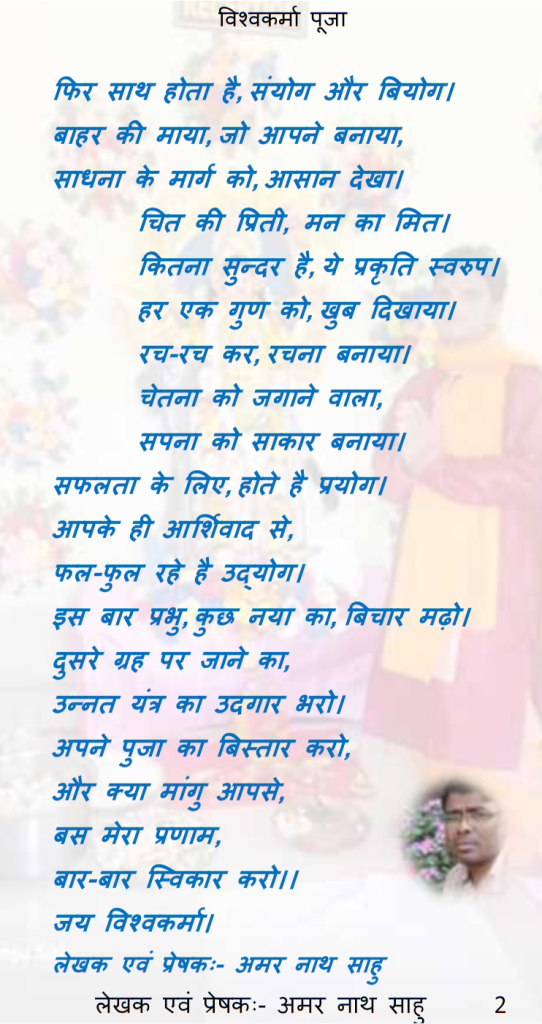 विश्वकर्मा पूजा
फिर साथ होता है, संयोग और बियोग।
बाहर की माया, जो आपने बनाया,
साधना के मार्ग को, आसान देखा।
चित की प्रिती, मन का मित।
कितना सुन्दर है, ये प्रकृति स्वरुप।
हर एक गुण को, खुब दिखाया।
रच-रच कर, रचना बनाया।
चेतना को जगाने वाला,
सपना को साकार बनाया।
सफलता के लिए, होते है प्रयोग।
आपके ही आर्शिवाद से,
फल-फुल रहे है उद्‌योग।
इस बार प्रभु, कुछ नया का, बिचार मढ़ो।
दुसरे ग्रह पर जाने का,
उन्नत यंत्र का उदगार भरो।
अपने पुजा का बिस्तार करो,
और क्या मांगु आपसे,
बस मेरा प्रणाम,
बार-बार स्विकार करो।।
जय विश्वकर्मा।
लेखक एवं प्रेषकः- अमर नाथ साहु
लेखक एवं प्रेषकः- अमर नाथ साहु 2